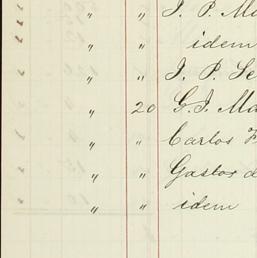 " " J. P. Ma
" " idem
" " J. P. Se
" 20 G. J. Ma
" " Carlos F
" " Gastos d
" " idem